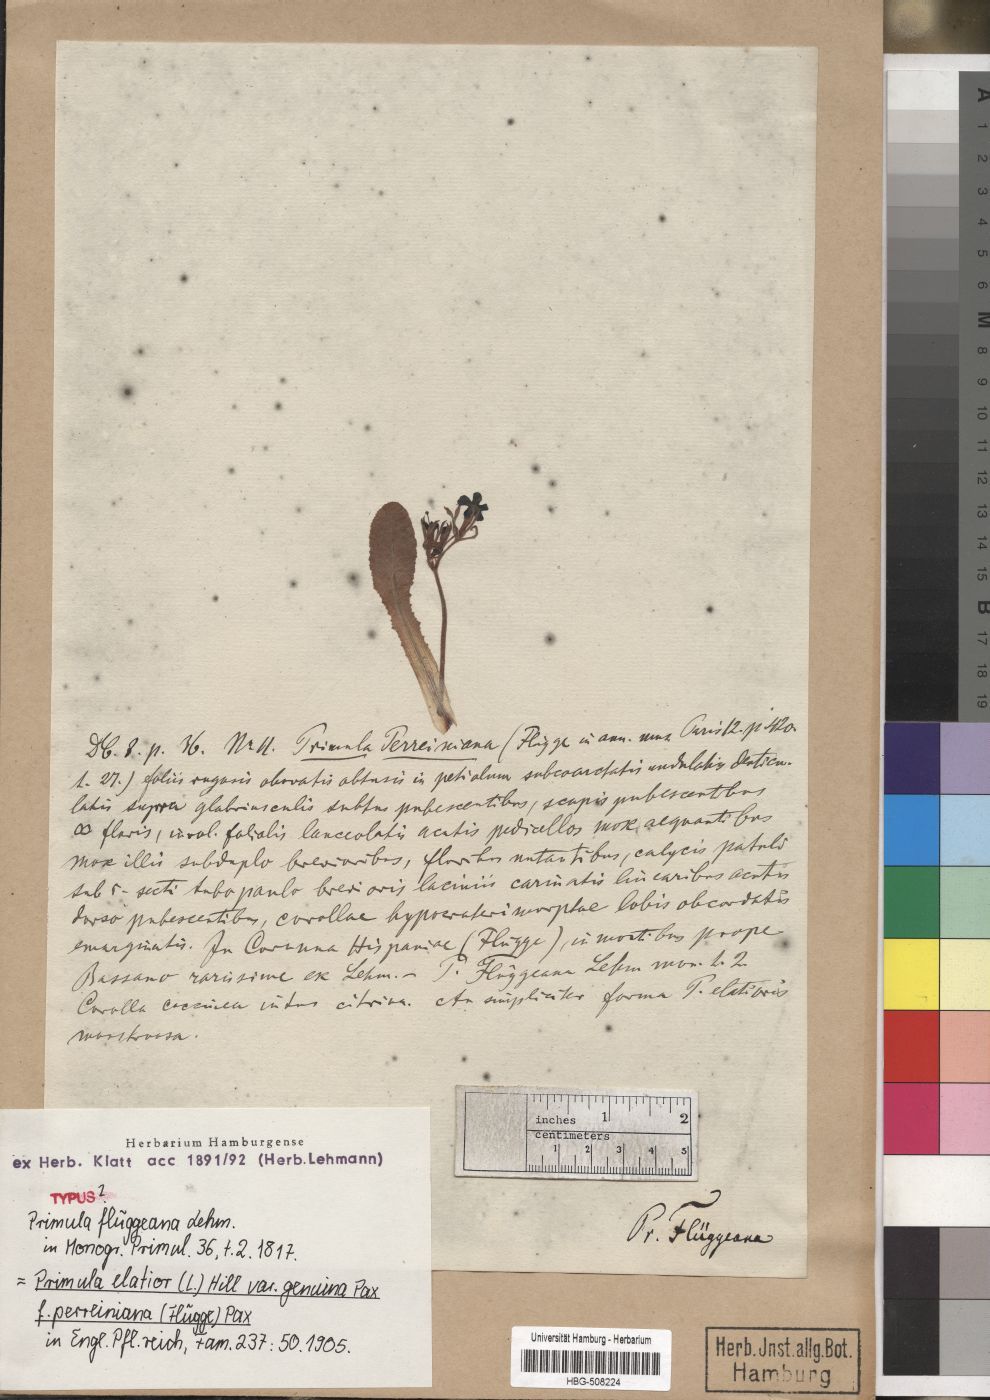 DC. 8. p. 36. Nr 11. Primula Perreiniana (Flügge in ann. mus. Paris 12. p. 420.
t. 27.) foliis rugosis obovatis obtusis in petiolum subcoarctatis undulatis denticu-
latis supra glabriusculis subtus pubescentibus, scapis pubescentibus
∞ floris, invol. foliolis lanceolatis acutis pedicellos mox aequantibus
mox illis subduplo brevioribus, floribus nutantibus, calycis patuli
sub 5-secti tubo paulo brevioris laciniis carinatis linearibus acutis
dorso pubescentibus, corollae hypocraterimorphae lobis obcordatis
emarginatis. In Corunna Hispaniae (Flügge), in montibus prope
Bassano rarissime ex Lehm. - P. Flüggeana Lehm mon. t. 2.
Corolla coccinea intus citrina. An simpliciter forma P. elatioris
monstruosa.
inches 1 2
centimeters
1 2 3 4 5
Herbarium Hamburgense
ex Herb. Klatt acc 1891/92 (Herb. Lehmann)
TYPUS?
Primula flüggeana Lehm.
in Monogr. Primul. 36, t. 2. 1817.
= Primula elatior (L.) Hill var. genuina Pax
f. perreiniana (Flügge) Pax
in Engl. Pfl.reich, Fam. 237: 50. 1905.
Pr. Flüggeana
Universität Hamburg - Herbarium
HBG-508224
Herb. Inst. allg. Bot.
Hamburg
A
1
2
3
4
5
6
M
8
9
10
11
12
13
14
15
B
17
18
19